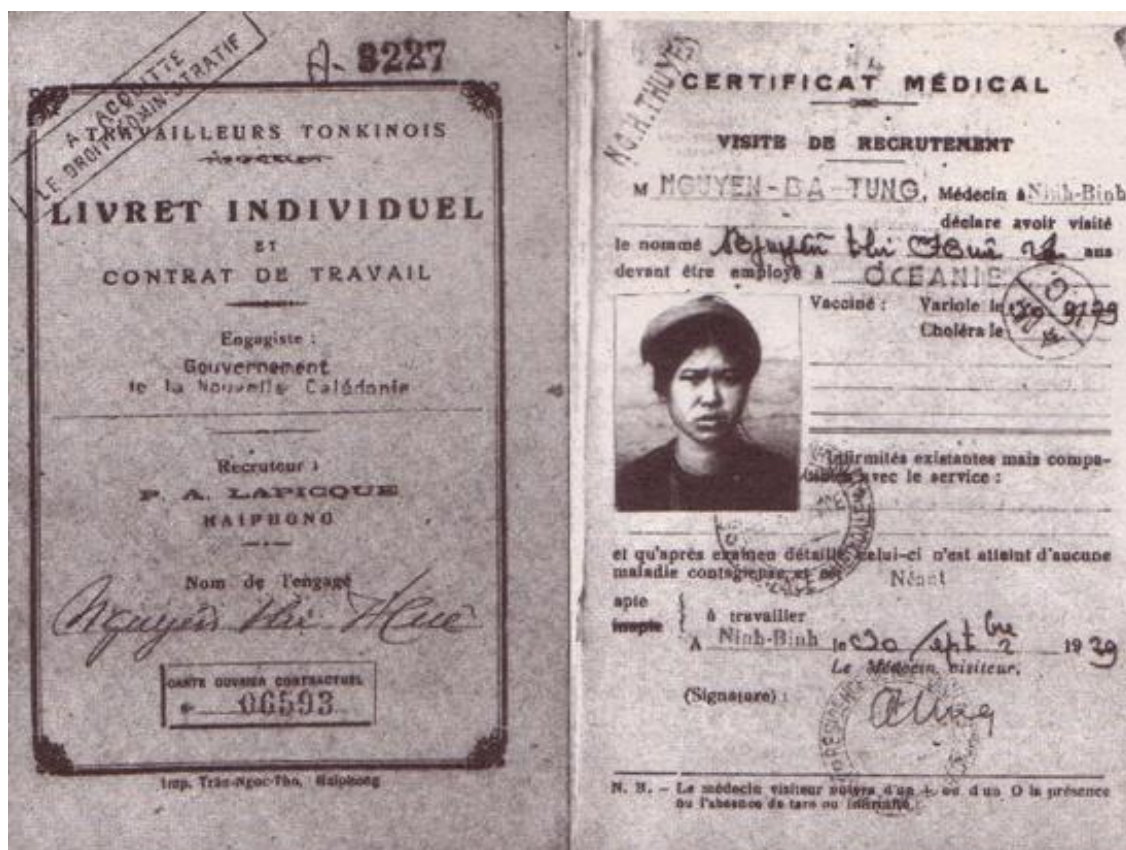 A- 3227
A ACQUITTE
LE DROIT ADMINISTRATIF
TRAVAILLEURS TONKINOIS
LIVRET INDIVIDUEL
ET
CONTRAT DE TRAVAIL
Engagiste :
Gouvernement
de la Nouvelle Calédonie
Recruteur :
P. A. LAPICQUE
HAIPHONG
Nom de l'engagé
Nguyên thi Huê
CARTE OUVRIER CONTRACTUEL
06593
Imp. Trân-Ngoc-Tho, Haiphong
NG.H.THUYET
CERTIFICAT MÉDICAL
VISITE DE RECRUTEMENT
M NGUYEN-BA-TUNG, Médecin à Ninh-Binh
déclare avoir visité
le nommé Nguyên thi Huê ans
devant être employé à OCEANIE
Vacciné : Variole le
Choléra le
Infirmités existantes mais compa-
tibles avec le service :
et qu'après examen détaillé celui-ci n'est atteint d'aucune
maladie contagieuse et est Néant
apte
inapte
à travailler
A Ninh-Binh le 30 septbre 1929
Le Médecin visiteur,
(Signature) :
N. B. - Le médecin visiteur notera d'un + ou d'un O la présence
ou l'absence de tare ou infirmité.